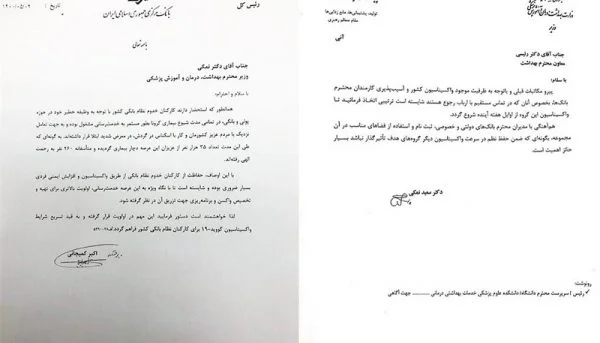 رئیس کل
بانک مرکزی جمهوری اسلامی ایران
تاریخ :
باسمه تعالی
جناب آقای دکتر نمکی
وزیر محترم بهداشت، درمان و آموزش پزشکی
با سلام و احترام؛
همانطور که استحضار دارند کارکنان خدوم نظام بانکی کشور با توجه به وظیفه خطیر خود در حوزه
پولی و بانکی، در تمامی مدت شیوع بیماری کرونا بطور مستمر به خدمت‌رسانی مشغول بوده و به جهت تعامل
نزدیک با مردم عزیز کشورمان و کار با اسکناس در گردش، در معرض شدید ابتلا قرار داشته‌اند. به گونه‌ای که
طی این مدت تعداد ۳۵ هزار نفر از عزیزان این عرصه دچار بیماری گردیده و متأسفانه ۲۶۰ نفر به رحمت
الهی رفته‌اند.
با این اوصاف، حفاظت از کارکنان خدوم نظام بانکی از طریق واکسیناسیون و افزایش ایمنی فردی
بسیار ضروری بوده و شایسته است تا با نگاه ویژه به این عرصه خدمت‌رسانی، اولویت بالاتری برای تهیه و
تخصیص واکسن و برنامه‌ریزی جهت تزریق آن در نظر گرفته شود.
لذا خواهشمند است دستور فرمایید این مهم در اولویت قرار گرفته و به قید تسریع شرایط
واکسیناسیون کووید-۱۹ برای کارکنان نظام بانکی کشور فراهم گردد.
اکبر کمیجانی
تولید، پشتیبانی‌ها، مانع زدایی‌ها
مقام معظم رهبری
وزیر
آنی
جناب آقای دکتر رئیسی
معاون محترم بهداشت
با سلام؛
پیرو مکاتبات قبلی و باتوجه به ظرفیت موجود واکسیناسیون کشور و آسیب‌پذیری کارمندان محترم
بانک‌ها، بخصوص آنان که در تماس مستقیم با ارباب رجوع هستند شایسته است ترتیبی اتخاذ فرمائید تا
واکسیناسیون این گروه از اوایل هفته آینده شروع گردد.
هماهنگی با مدیران محترم بانک‌های دولتی و خصوصی، ثبت نام و استفاده از فضاهای مناسب در آن
مجموعه، بگونه‌ای که ضمن حفظ نظم در سرعت واکسیناسیون دیگر گروه‌های هدف تأثیر گذار نباشد بسیار
حائز اهمیت است.
دکتر سعید نمکی
رونوشت:
رئیس / سرپرست محترم دانشگاه/ دانشکده علوم پزشکی خدمات بهداشتی درمانی جهت آگاهی